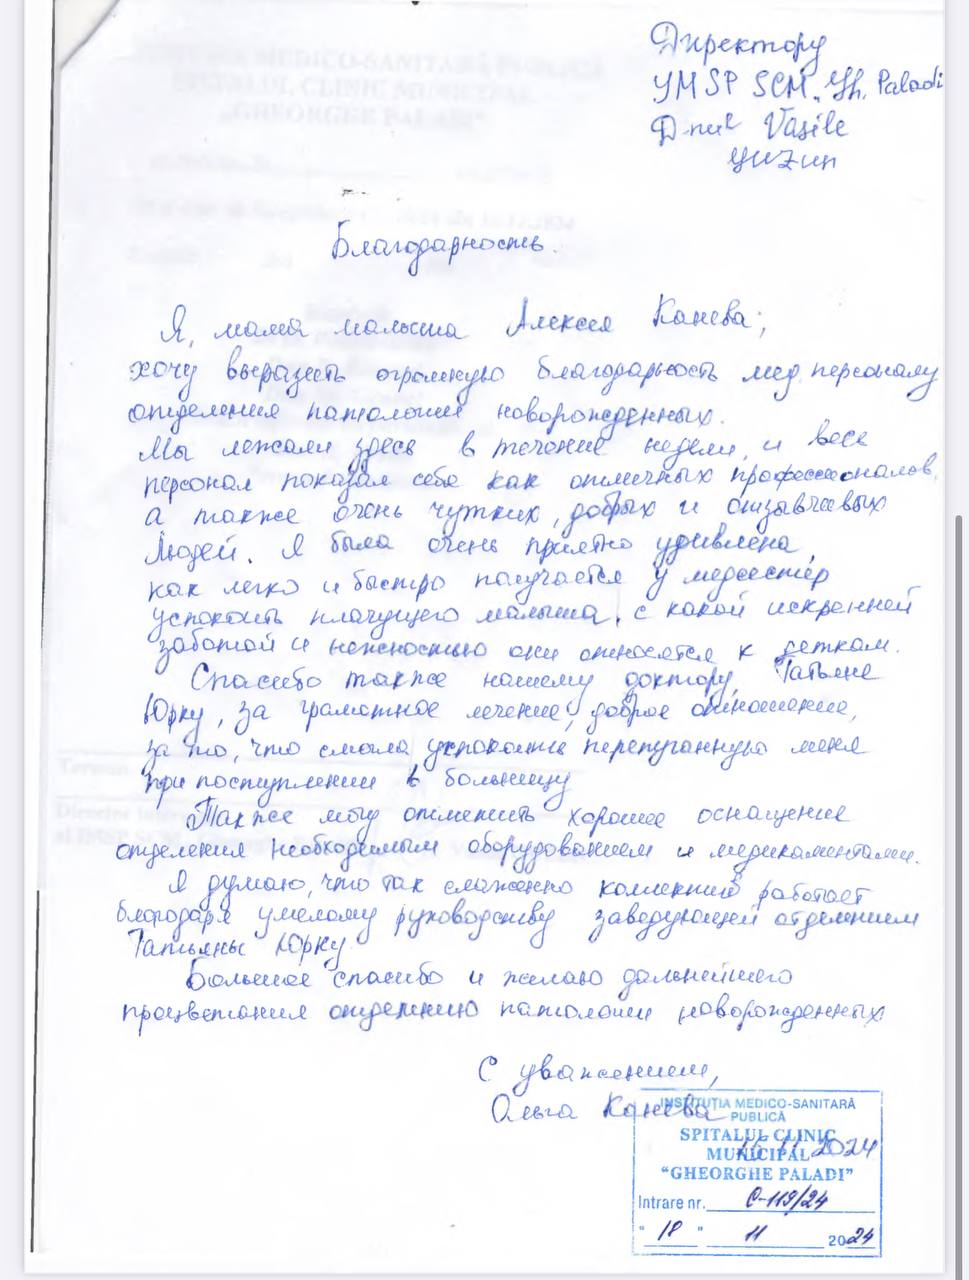 Директору
УMSP SCM „Gh. Paladi
D-nul Vasile
Guzun
Благодарность.
Я, мама малыша Алексея Канева,
хочу выразить огромную благодарность мед. персоналу
отделения патологии новорожденных.
Мы лежали здесь в течение недели, и весь
персонал показал себя как отличных профессионалов,
а также очень чутких, добрых и отзывчивых
людей. Я была очень приятно удивлена,
как легко и быстро получается у медсестёр
успокоить плачущего малыша, с какой искренней
заботой и нежностью они относятся к деткам.
Спасибо также нашему доктору, Татьяне
Юрку, за грамотное лечение, доброе отношение,
за то, что смогла успокоить перепуганную меня
при поступлении в больницу
Также могу отметить хорошее оснащение
отделения необходимым оборудованием и медикаментами.
Я думаю, что так слаженно коллектив работает
благодаря умелому руководству заведующей отделением
Татьяны Юрку.
Большое спасибо и желаю дальнейшего
процветания отделению патологии новорожденных
С уважением,
Ольга Канева
INSTITUȚIA MEDICO-SANITARĂ
PUBLICĂ
SPITALUL CLINIC
MUNICIPAL
11 2024
“GHEORGHE PALADI”
Intrare nr. C-119/24
" 18 " 11 2024